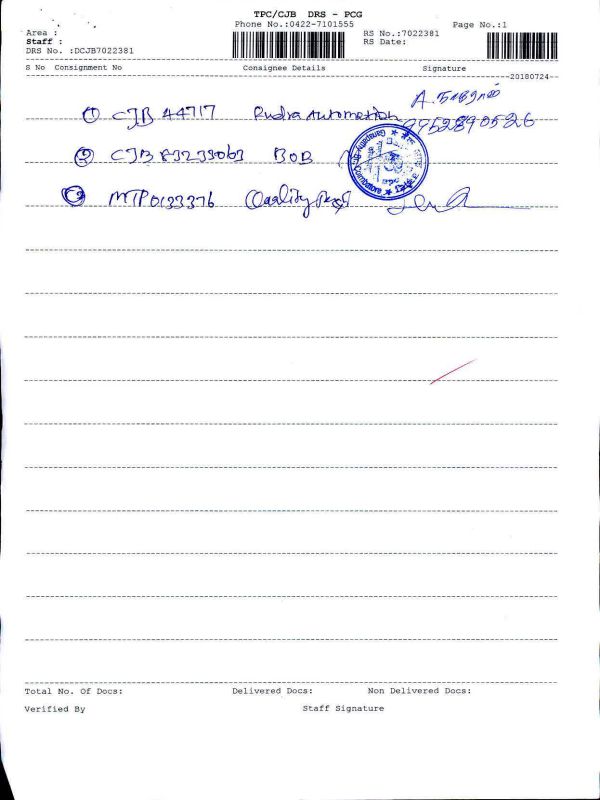 TPC/CJB DRS - PCG
Phone No.:0422-7101555
Page No.:1
Area :
RS No.:7022381
Staff :
RS Date:
DRS No. :DCJB7022381
S No Consignment No Consignee Details Signature
20180724
① CJB 44717 Rudra Automation
9952890526
② CJB 83233063 BOB
③ MTP0133376 Quality
Total No. Of Docs: Delivered Docs: Non Delivered Docs:
Verified By Staff Signature